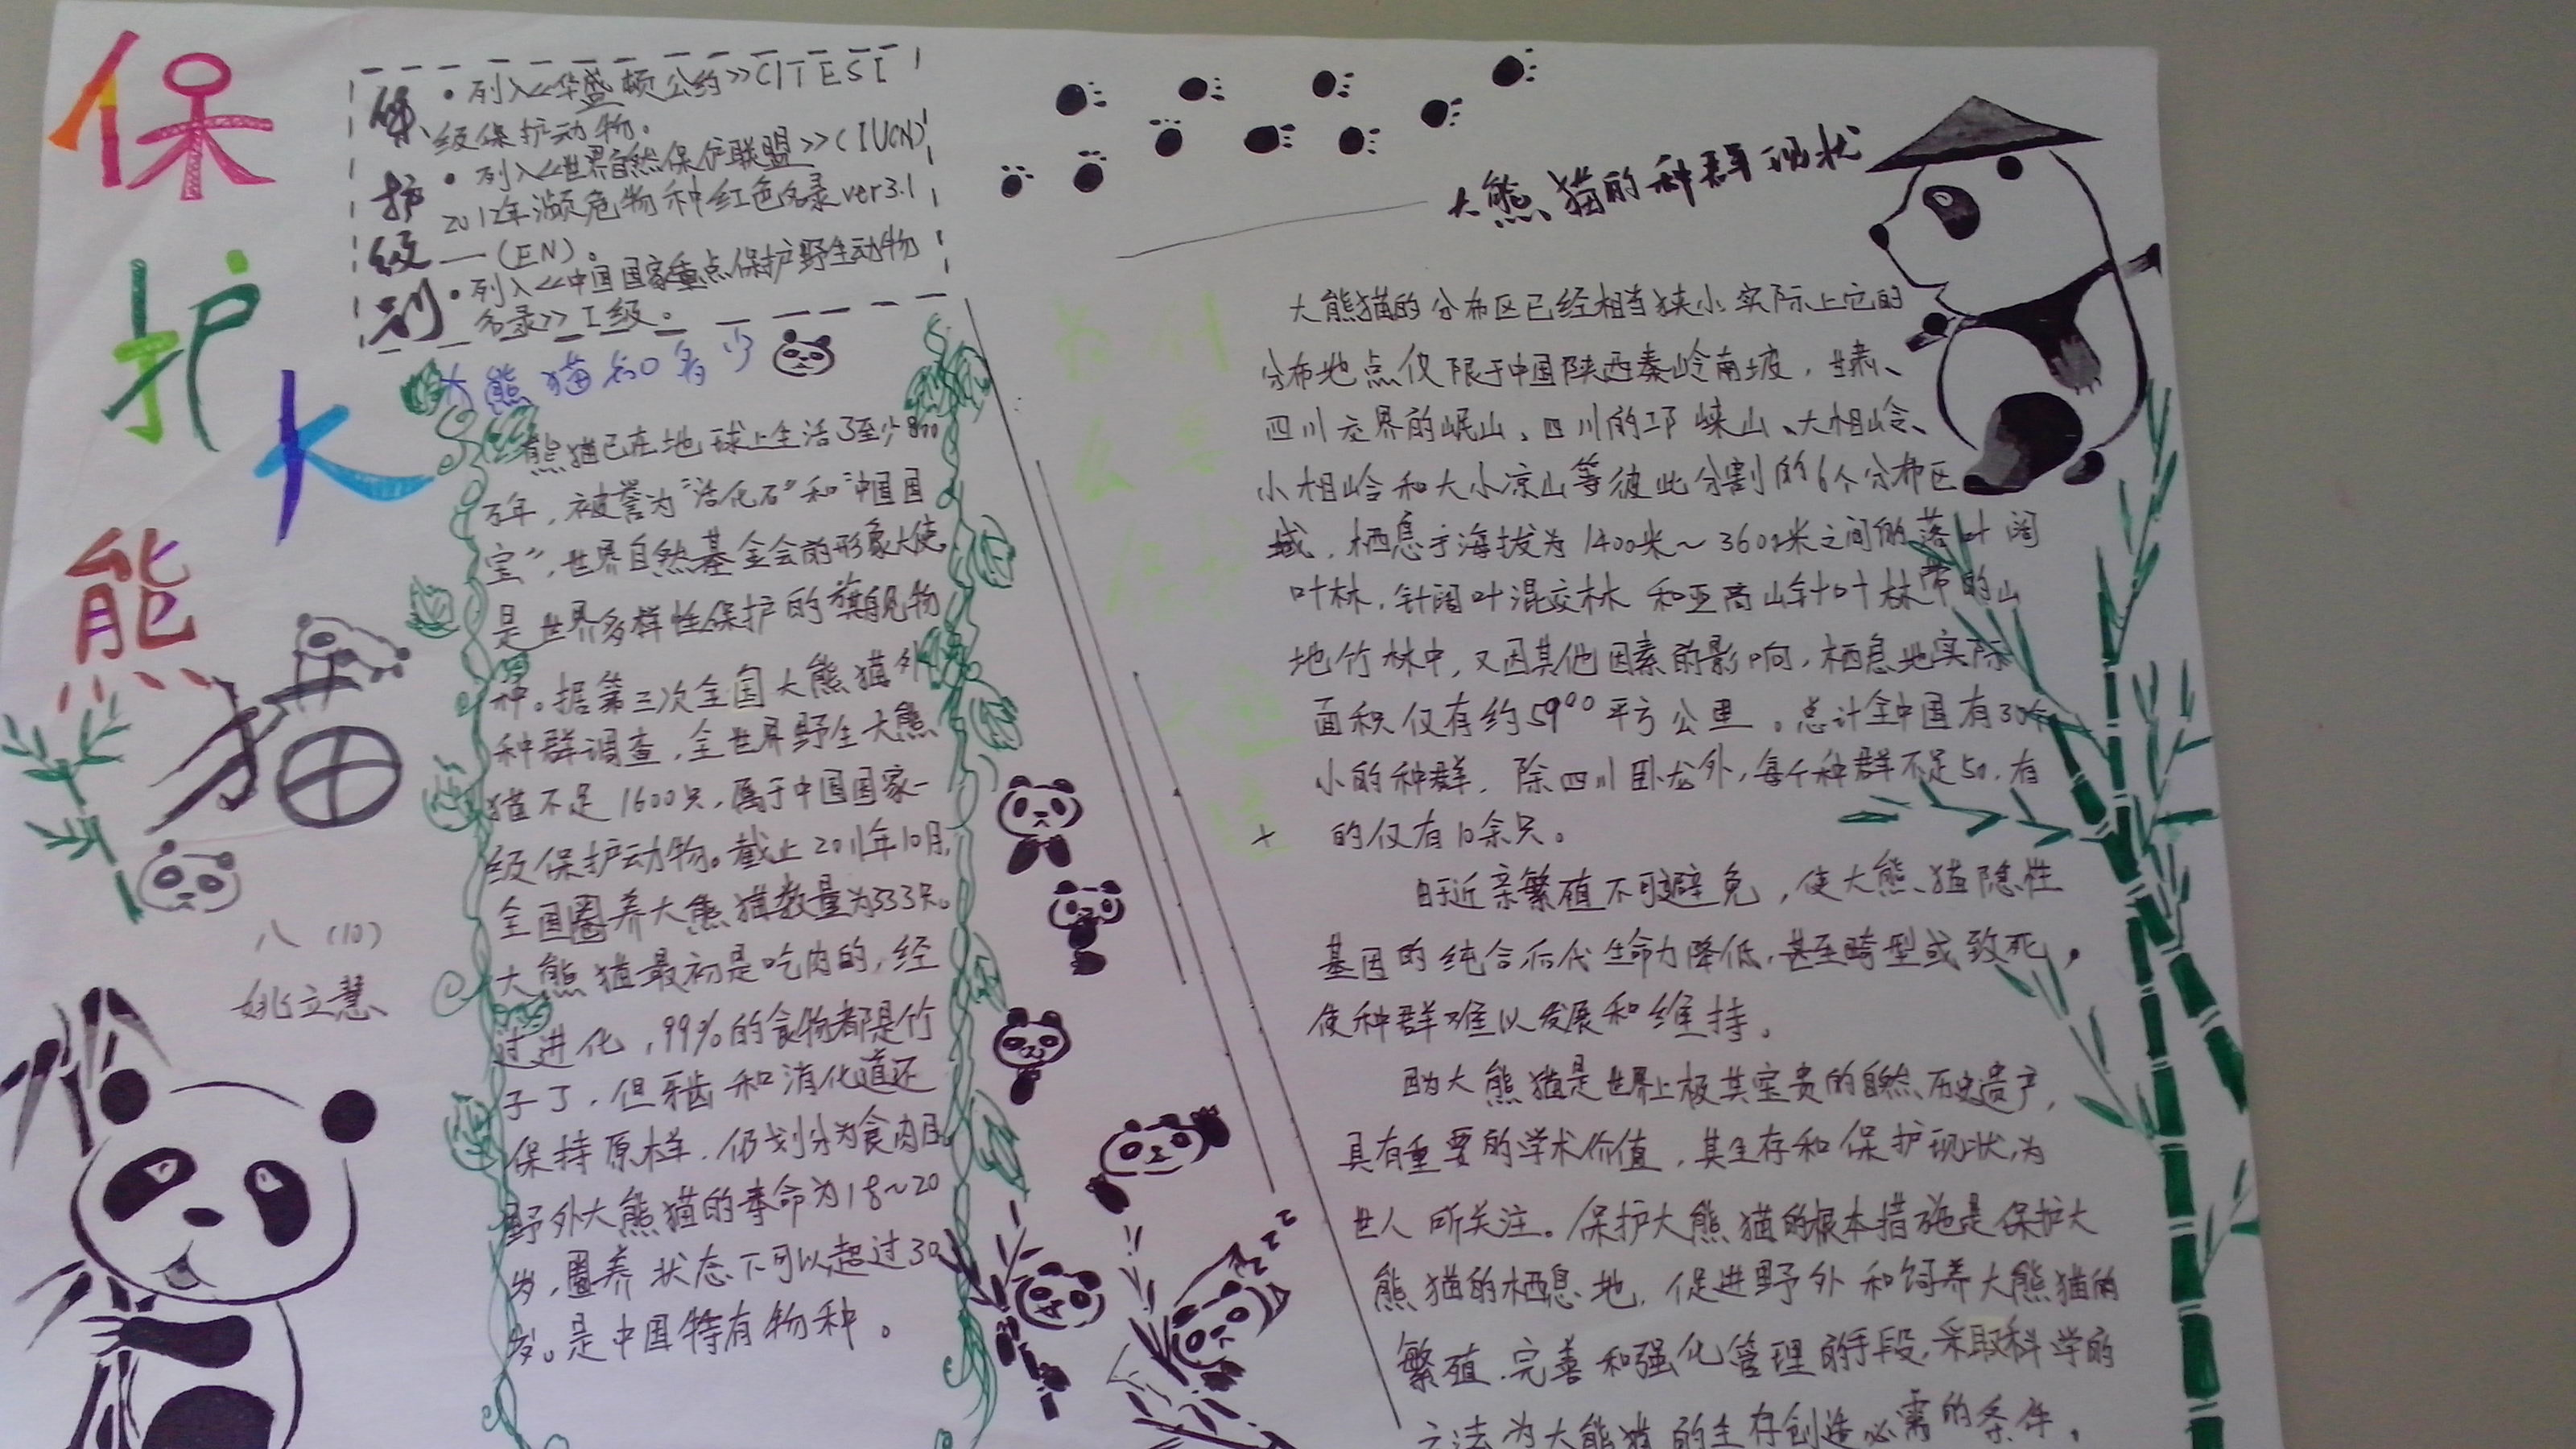 保护大熊猫
八（10）
姚立慧
保护级别
• 列入《华盛顿公约》CITES I
级保护动物。
• 列入《世界自然保护联盟》（IUCN）
2012年濒危物种红色名录ver3.1
—（EN）。
• 列入《中国国家重点保护野生动物
名录》I级。
大熊猫知多少
熊猫已在地球上生活了至少800
万年，被誉为“活化石”和“中国国
宝”，世界自然基金会的形象大使，
是世界多样性保护的旗舰物
种。据第三次全国大熊猫外
种群调查，全世界野生大熊
猫不足1600只，属于中国国家一
级保护动物。截止2011年10月，
全国圈养大熊猫数量为333只。
大熊猫最初是吃肉的，经
过进化，99%的食物都是竹
子了，但牙齿和消化道还
保持原样，仍划分为食肉目。
野外大熊猫的寿命为18~20
岁，圈养状态下可以超过30
岁。是中国特有物种。
为什
么要
保
大熊猫的种群现状
大熊猫的分布区已经相当狭小，实际上它的
分布地点仅限于中国陕西秦岭南坡，甘肃、
四川交界的岷山、四川的邛崃山、大相岭、
小相岭和大小凉山等彼此分割的6个分布区
域，栖息于海拔为1400米~3600米之间的落叶阔
叶林，针阔叶混交林和亚高山针叶林带的山
地竹林中，又因其他因素的影响，栖息地实际
面积仅有约5900平方公里。总计全中国有30个
小的种群，除四川卧龙外，每个种群不足50，有
的仅有10余只。
由于近亲繁殖不可避免，使大熊猫隐性
基因的纯合后代生命力降低，甚至畸型或致死，
使种群难以发展和维持。
因为大熊猫是世界上极其宝贵的自然历史遗产，
具有重要的学术价值，其生存和保护现状，为
世人所关注。保护大熊猫的根本措施是保护大
熊猫的栖息地，促进野外和饲养大熊猫的
繁殖，完善和强化管理的手段，采取科学的
方法为大熊猫的生存创造必需的条件。